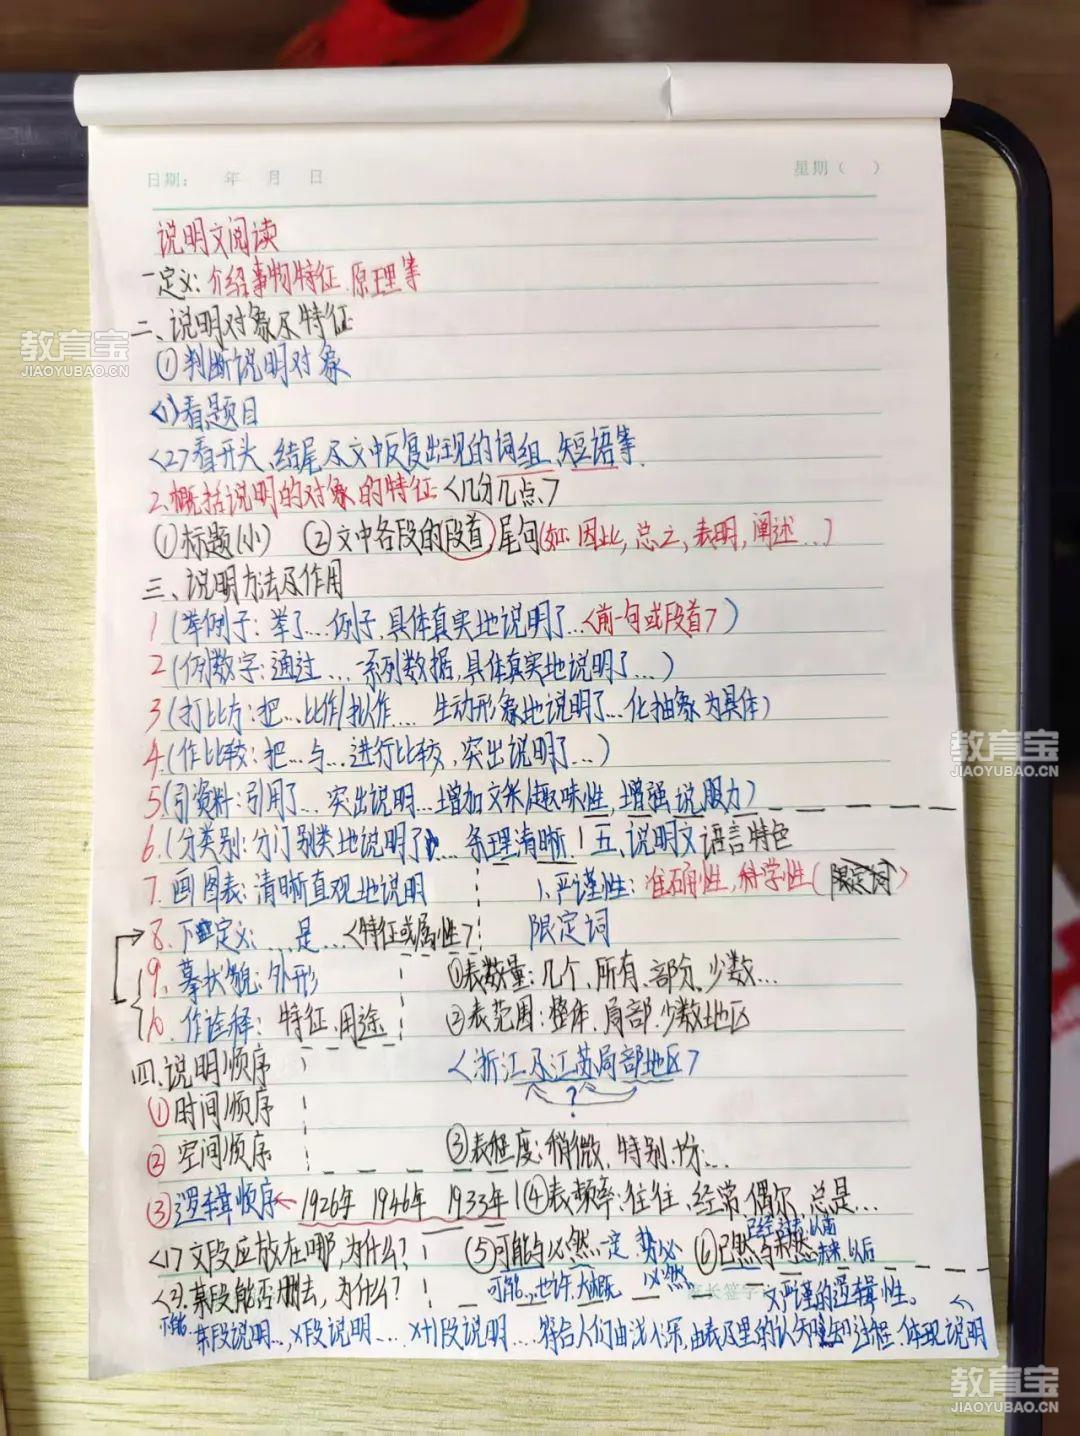 日期: 年 月 日 星期( )
说明文阅读
一定义:介绍事物特征.原理等
二、说明对象及特征
①判断说明对象
<1>看题目
<2>看开头、结尾及文中反复出现的词组、短语等.
2.概括说明的对象的特征:<几分几点、>
①标题(小) ②文中各段的段首,尾句(如:因此,总之,表明,阐述...)
三、说明方法及作用
1(举例子:举了...例子,具体真实地说明了...<前一句或段首>)
2(列数字:通过...一系列数据,具体真实地说明了...)
3(打比方:把...比作/拟作... 生动形象地说明了...化抽象为具体)
4.(作比较:把...与...进行比较,突出说明了...)
5(引资料:引用了...突出说明...增加文采/趣味性,增强说服力)
6.(分类别:分门别类地说明了...条理清晰 五、说明文语言特色
7.画图表:清晰直观地说明 1.严谨性:准确性,科学性(限定词)
8.下定义:...是...<特征或属性> 限定词
9.摹状貌:外形 ①表数量:几个、所有、部分、少数...
10.作诠释:特征、用途 ②表范围:整体、局部、少数地区
四.说明顺序 <浙江及江苏局部地区>
?
①时间顺序
②空间顺序 ③表程度:稍微、特别、均...
③逻辑顺序 1926年 1946年 1933年 ④表频率:往往、经常、偶尔、总是...
已经 过去、以前
<1>文段应放在哪,为什么? ⑤可能与必然.一定 势必 ⑥已然与未然 未来、以后
<2>.某段能否删去,为什么? 可能、也许、大概 必然 家长签字 文严谨的逻辑性。
不能.某段说明...,X段说明...X+1段说明...符合人们由浅入深,由表及里的认知过程.体现说明
教育宝
JIAOYUBAO.CN
教育宝
JIAOYUBAO.CN
教育宝
JIAOYUBAO.CN